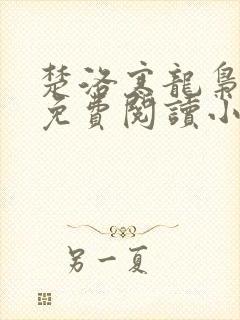 楚洛寒龍梟
免費閱讀小
另一夏